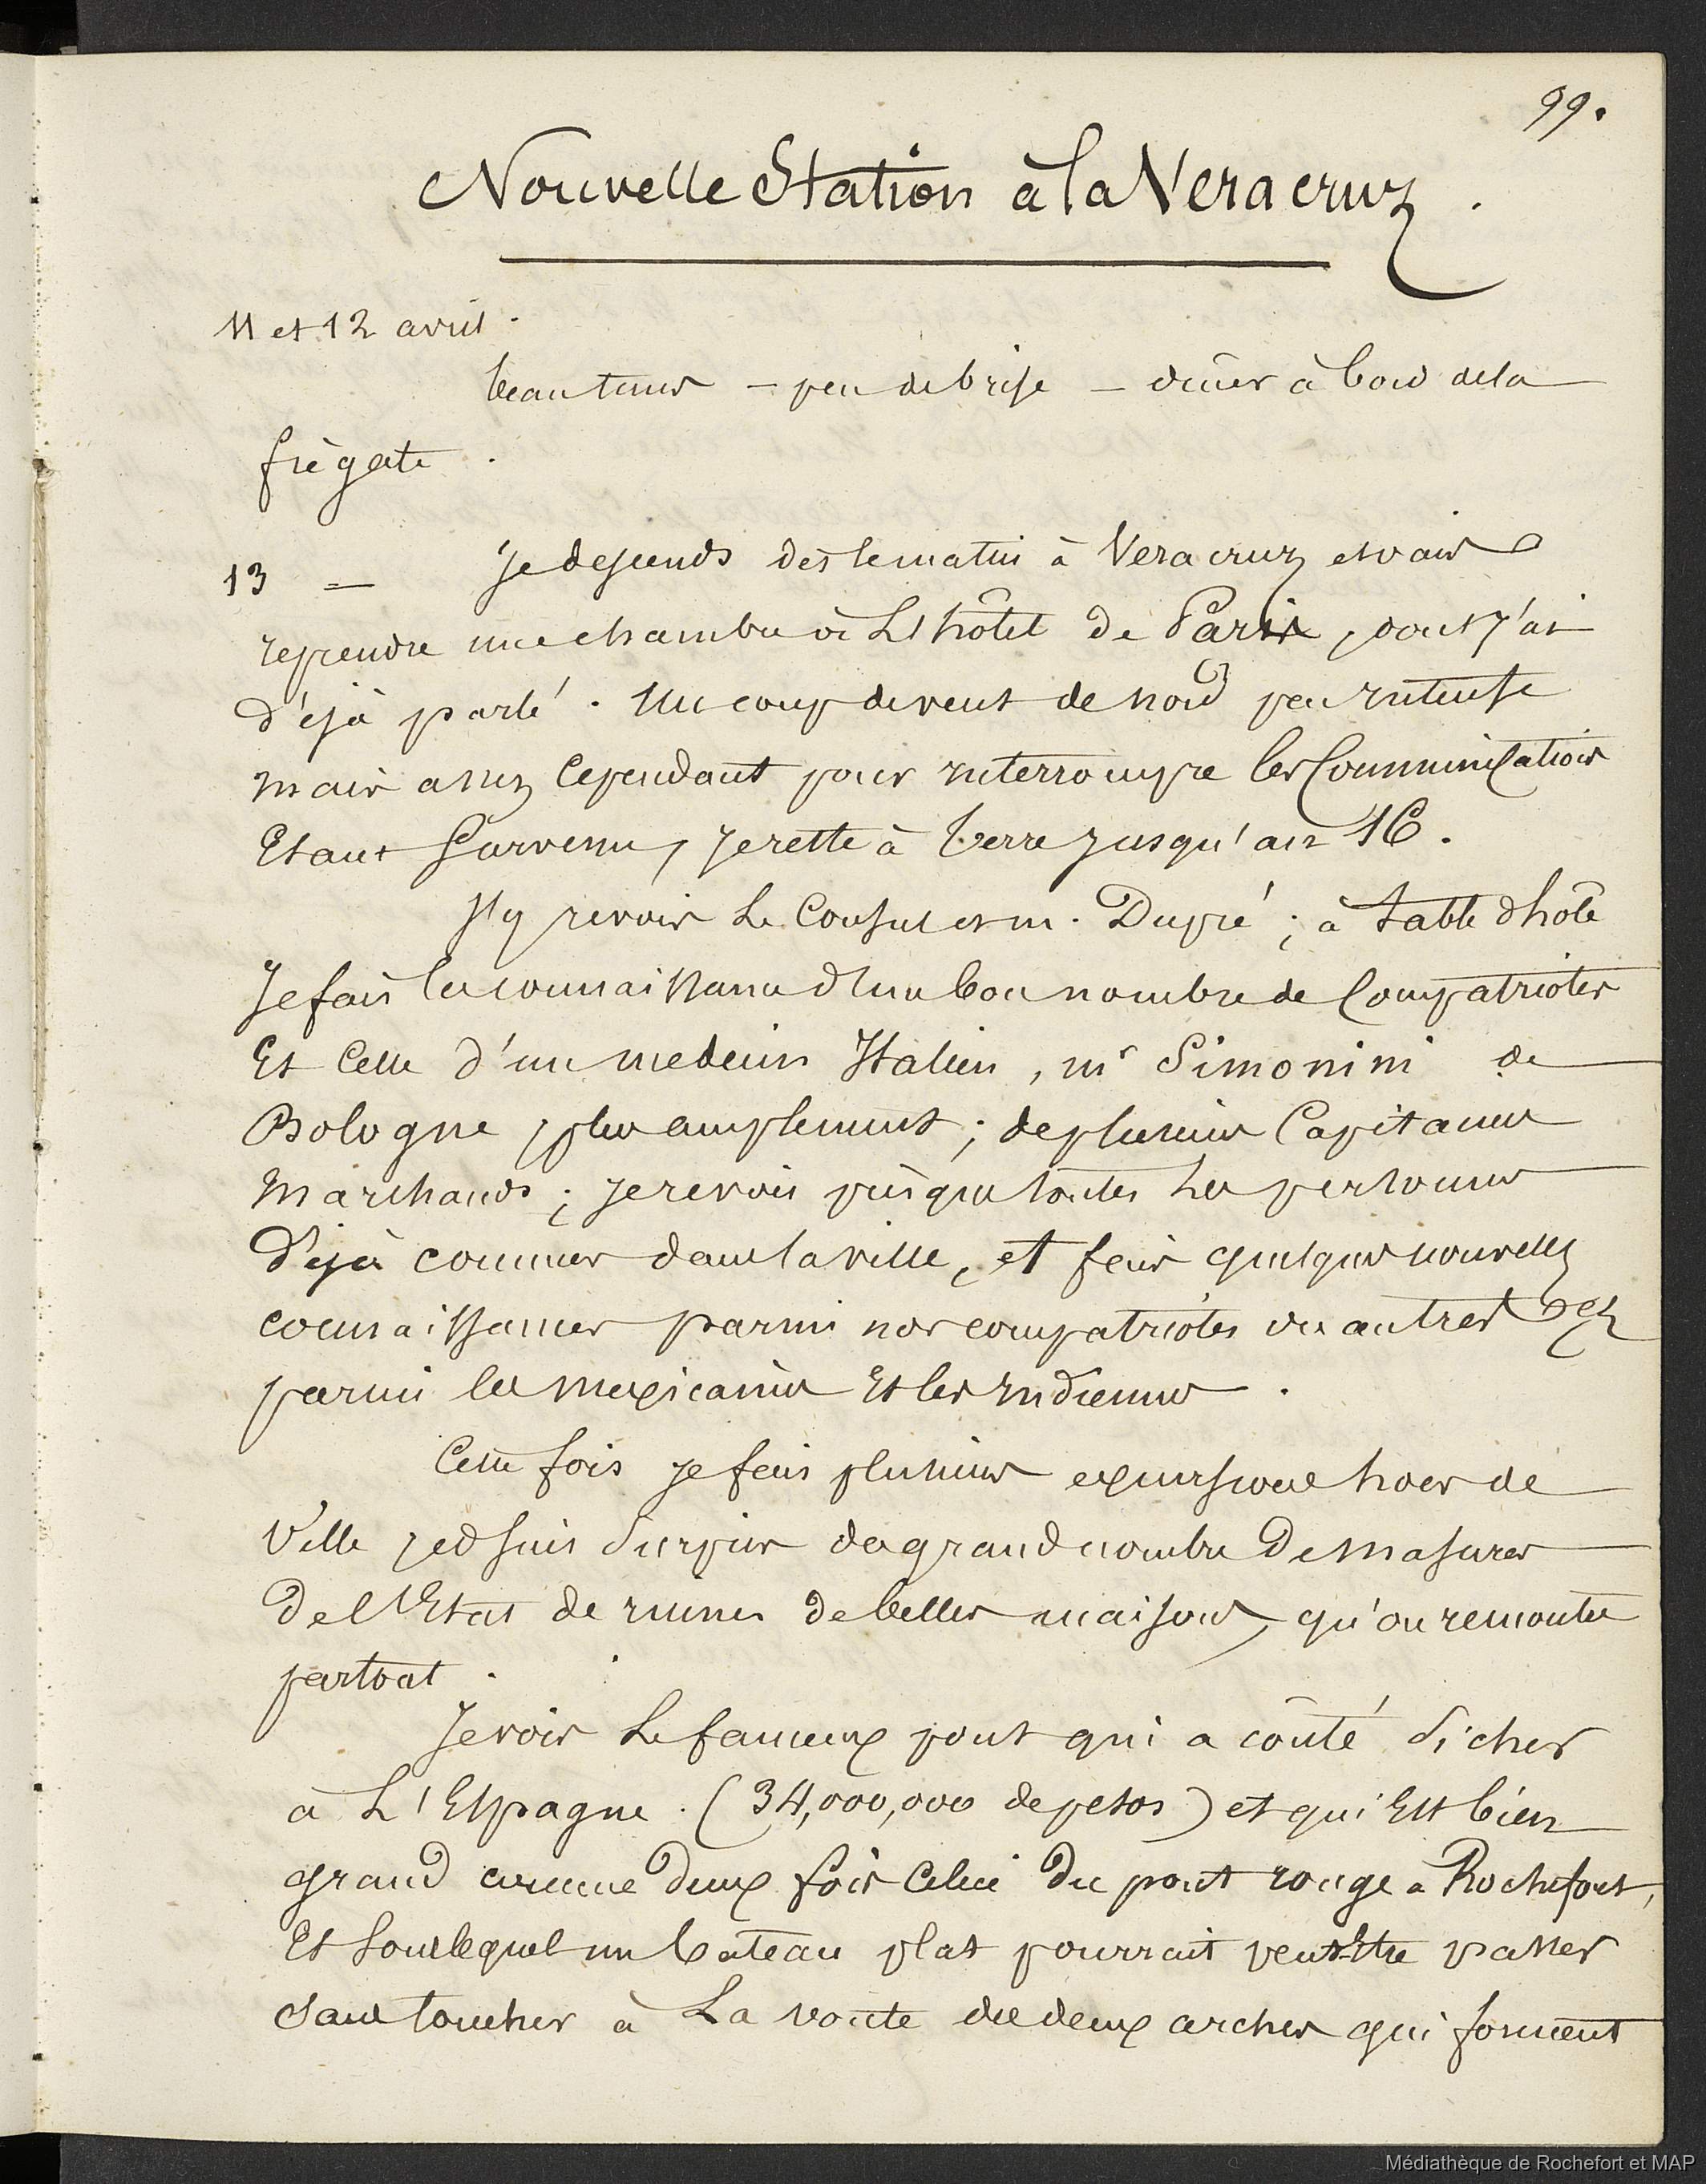 99.
Nouvelle Station à la Vera cruz.
11 et 12 avril.
beau tems – peu de brise – diner à bord de la
frégate.
13 = Je descends dès le matin à Vera cruz et vais
reprendre une chambre à L'hôtel de Paris, dont j'ai
déjà parlé. Un coup de vent de nord peu intense
mais assez cependant pour interrompre les Communications
Etant survenu, je reste à terre jusqu'au 16.
J'y revois Le Consul et m. Dupré; à table d'hôte
Je fais la connaissance d'un bon nombre de Compatriotes
Et Celle d'un medecin Italien, mr Simonini de
Bologne plus amplement; de plusieurs Capitaines
Marchands; je revois presque toutes Les personnes
Déjà connues dans la ville, et fais quelques nouvelles
connaissances parmi nos compatriotes ou autres
parmi les mexicaines Et les indiennes.
Cette fois je fais plusieurs excursions hors de
Ville je suis Surpris du grand nombre De masures
De l'Etat de ruines de belles maisons, qu'on remontre
partout.
Je vois Le fameux pont qui a coûté Si cher
à L'Espagne. (34,000,000 de pesos) et qui Est bien
grand comme Deux fois Celui Du pont rouge a Rochefort,
Et Sous lequel un bateau plat pourrait peut Etre passer
Sans toucher à La voute des deux arches qui forment
Médiathèque de Rochefort et MAP